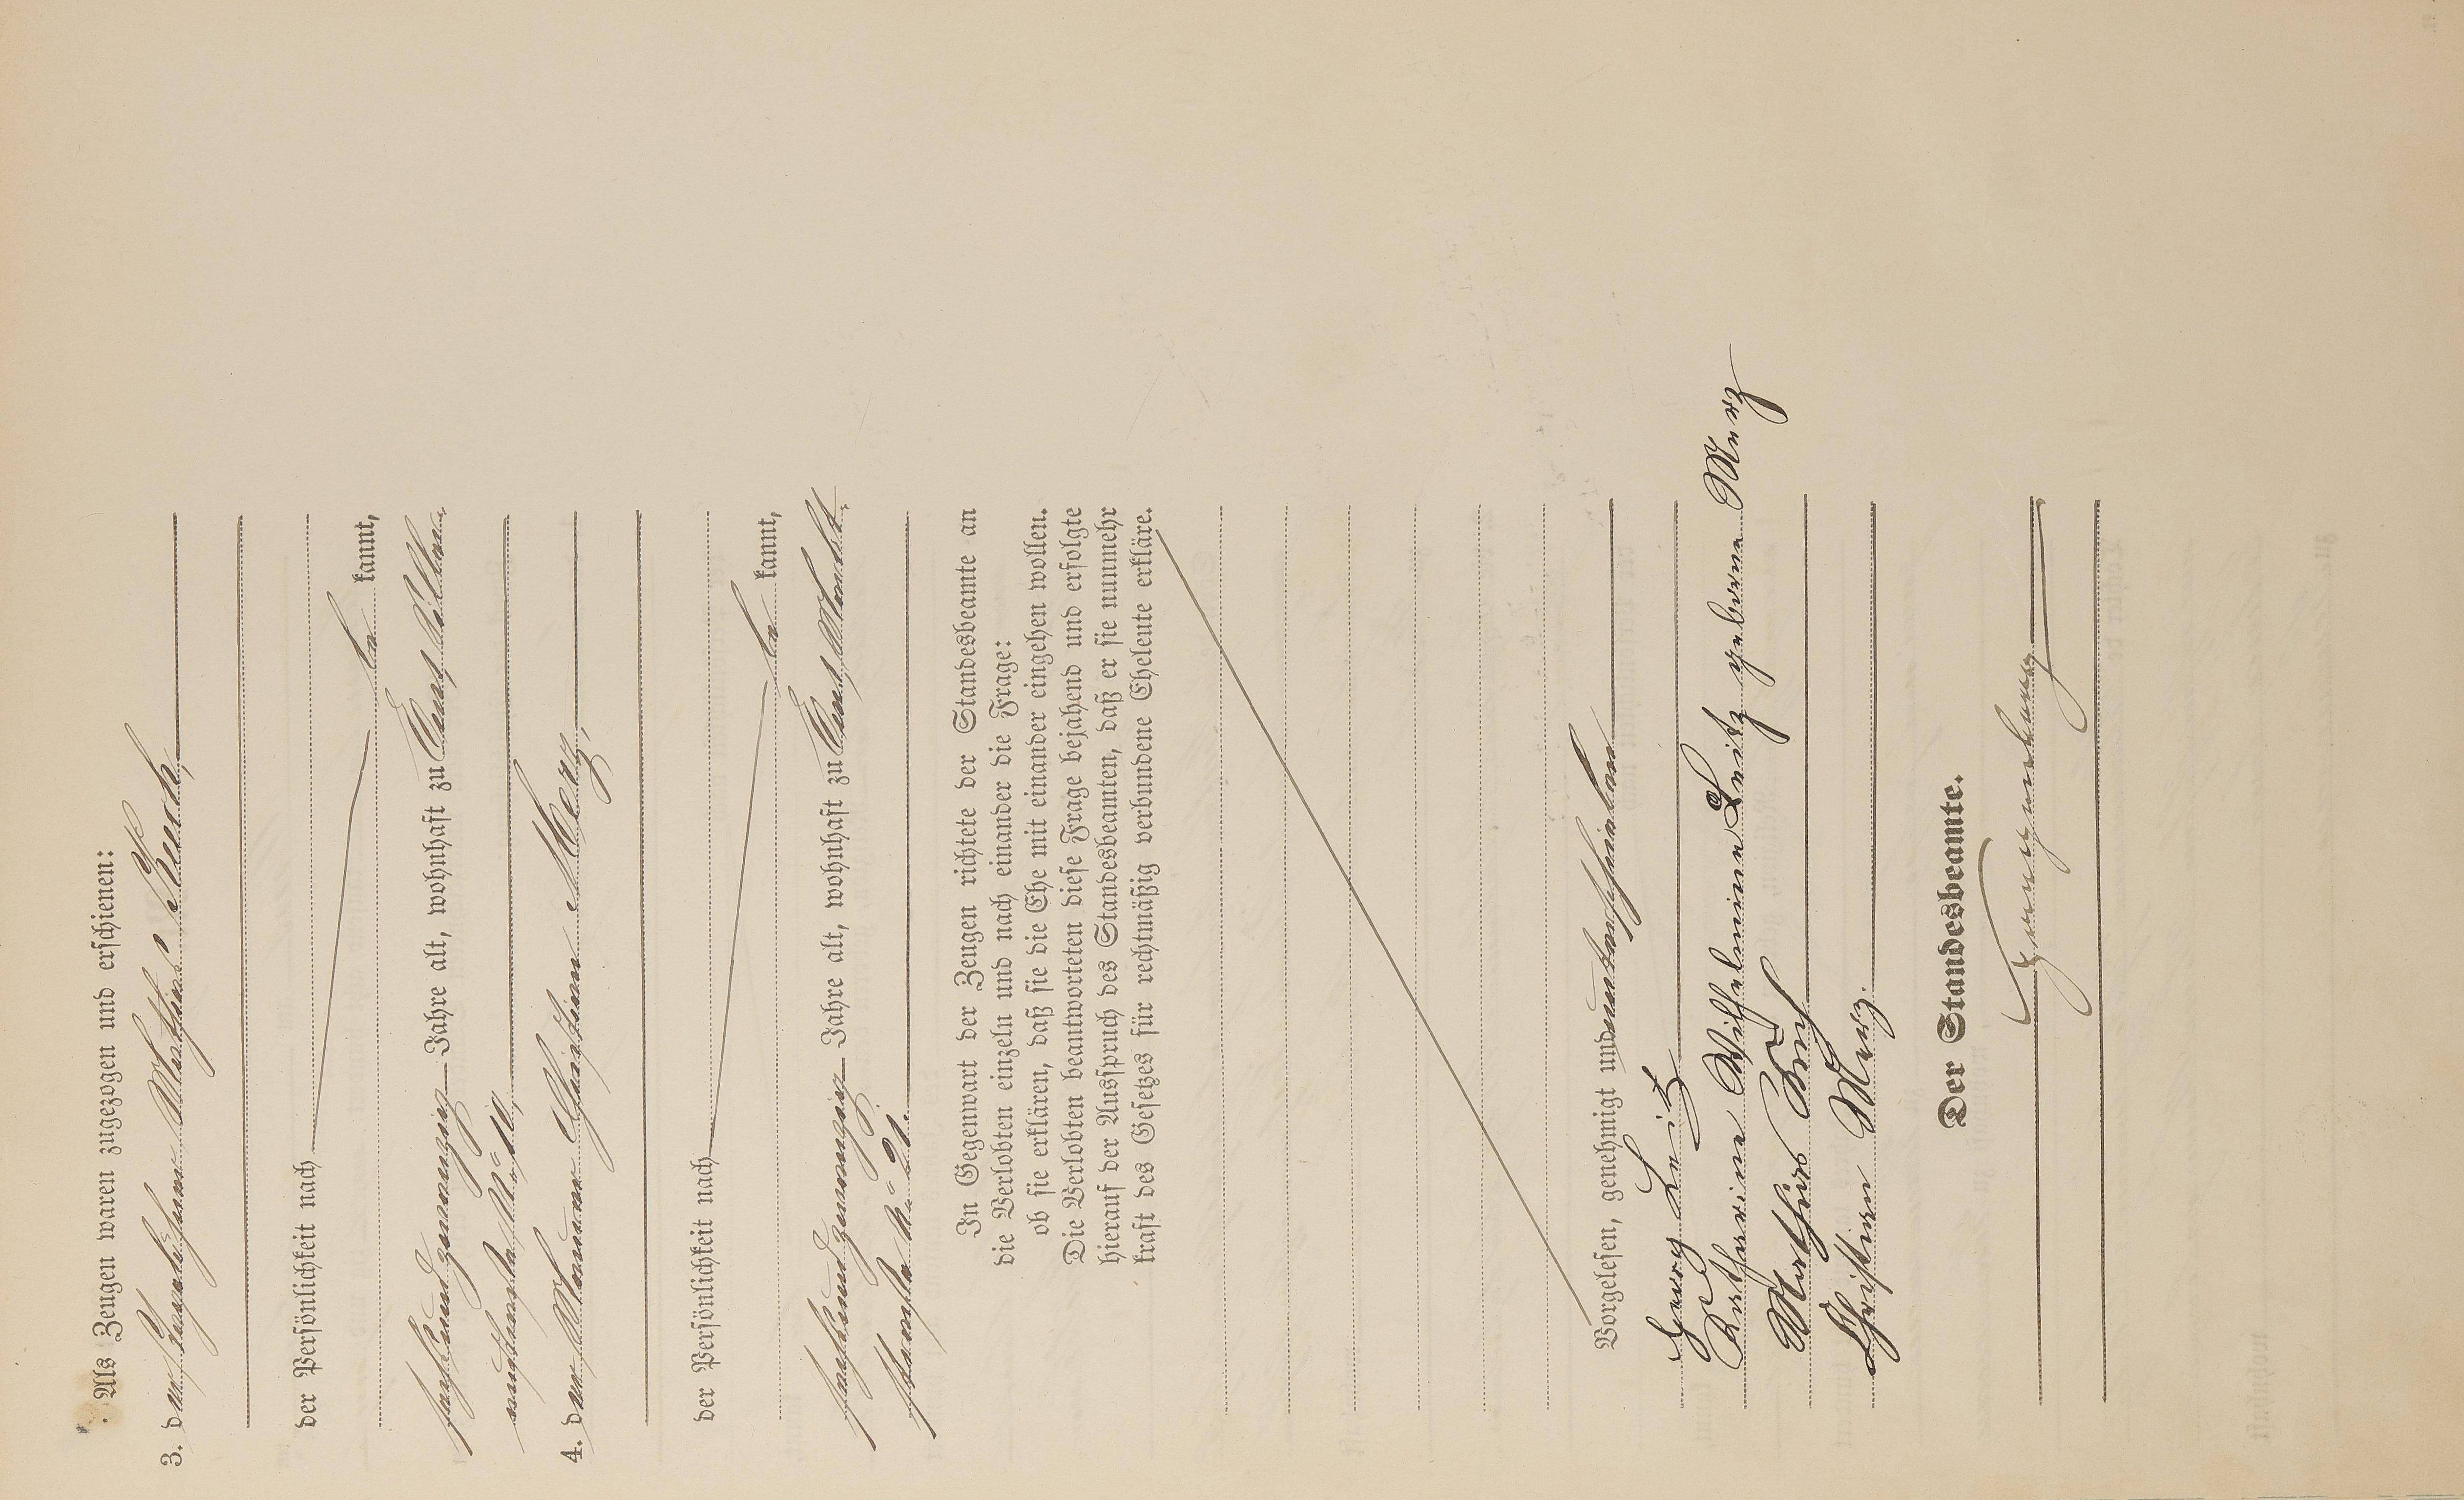 Als Zeugen waren zugezogen und erschienen:
3. der Mathias Buch,
der Persönlichkeit nach
be kannt,
fünfundzwanzig Jahre alt, wohnhaft zu
4. der Maurer Christian Merz,
der Persönlichkeit nach
be kannt,
Jahre alt, wohnhaft zu
In Gegenwart der Zeugen richtete der Standesbeamte an
die Verlobten einzeln und nach einander die Frage:
ob sie erklären, daß sie die Ehe mit einander eingehen wollen.
Die Verlobten beantworteten diese Frage bejahend und erfolgte
hierauf der Ausspruch des Standesbeamten, daß er sie nunmehr
kraft des Gesetzes für rechtmäßig verbundene Eheleute erkläre.
Vorgelesen, genehmigt und unterschrieben
Georg Seitz
Katharina Wilhelmine Seitz geborne Merz
Mathias Buch
Christian Merz.
Der Standesbeamte.